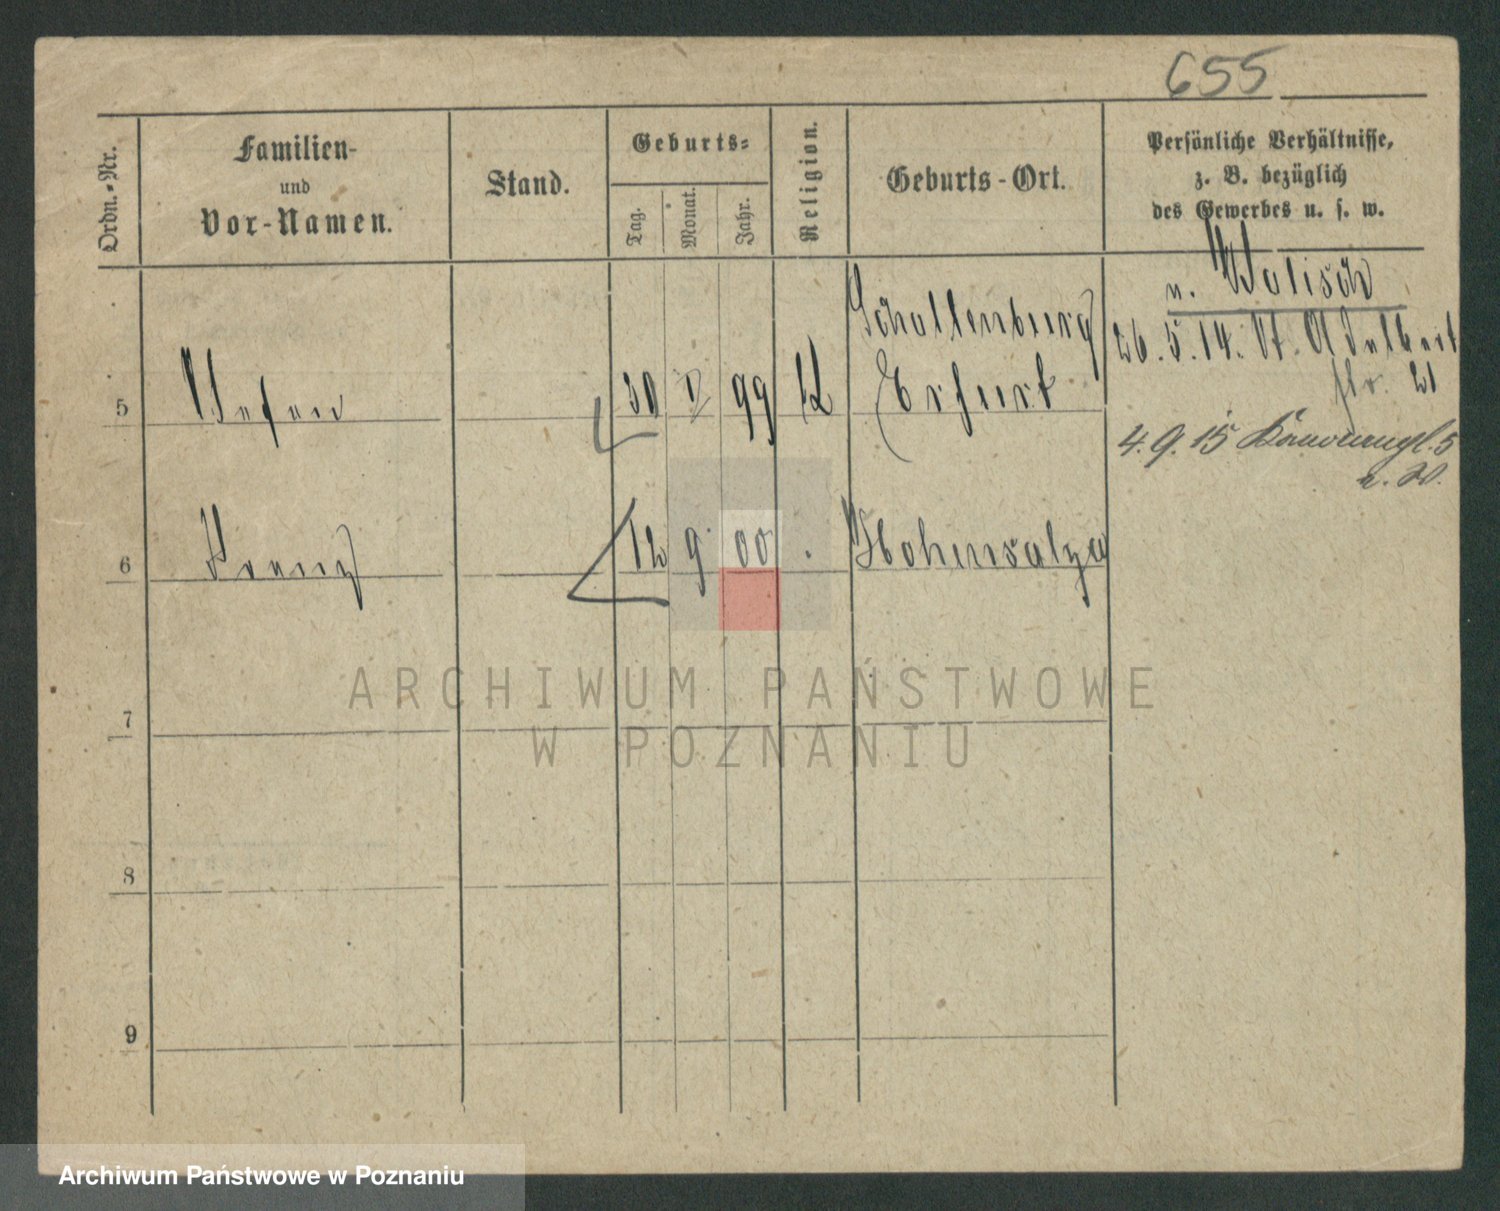 655
Ordn.-Nr.
Familien-
und
Vor-Namen.
Stand.
Geburts-
Tag.
Monat.
Jahr.
Religion.
Geburts-Ort.
Persönliche Verhältnisse,
z. B. bezüglich
des Gewerbes u. s. w.
n.
26.5.14. St. Adalbert
str. 21
4.9.15 5
5 30 99 Erfurt
6 Franz 12 9 00 Hohensalza
7
8
9
ARCHIWUM PAŃSTWOWE
W POZNANIU
Archiwum Państwowe w Poznaniu